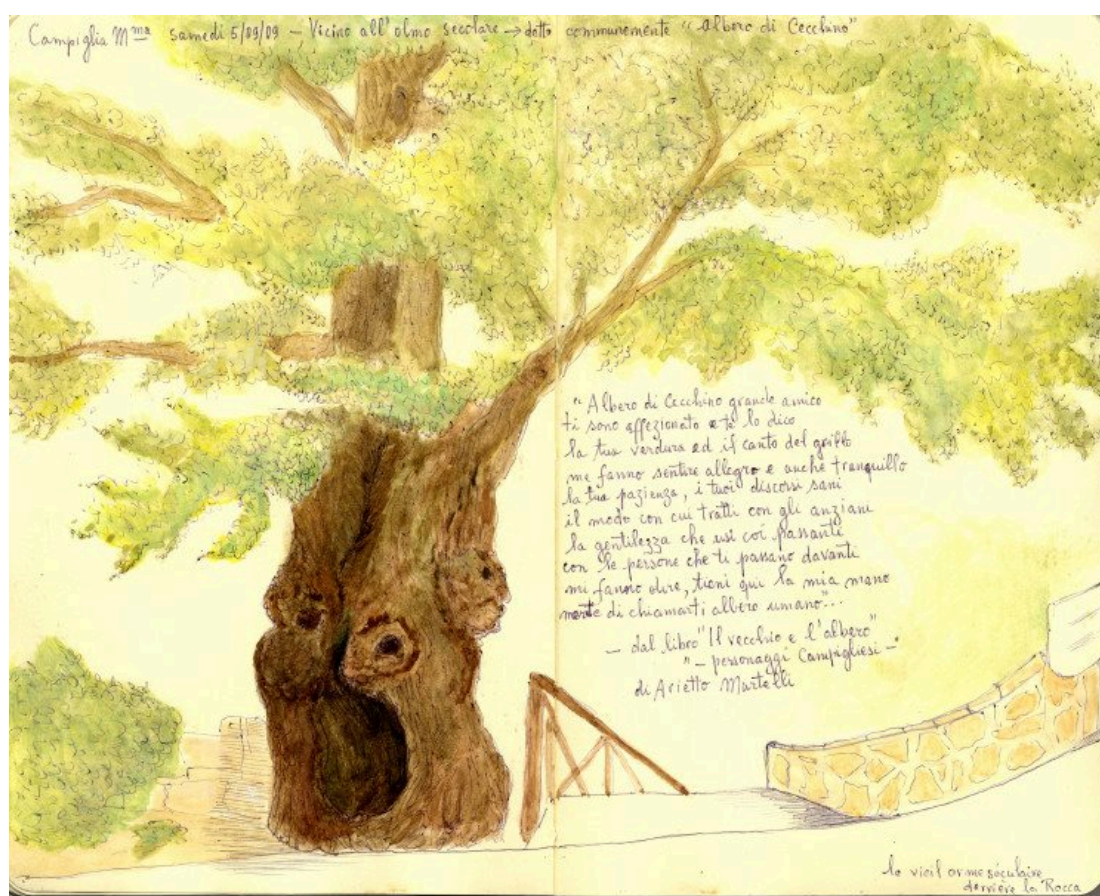 Campiglia Mma samedi 5/09/09 – Vicino all'olmo secolare → detto communemente "Albero di Cecchino"
"Albero di Cecchino grande amico
ti sono affezionato e te lo dico
la tua verdura ed il canto del grillo
me fanno sentire allegro e anche tranquillo
la tua pazienza, i tuoi discorsi sani
il modo con cui tratti con gli anziani
la gentilezza che usi coi passanti
con le persone che ti passano davanti
mi fanno dire, tieni qui la mia mano
di chiamarti albero umano"...
– dal libro "Il vecchio e l'albero"
" – personaggi Campigliesi – "
di Arietto Martelli
le vieil orme séculaire
derrière la Rocca